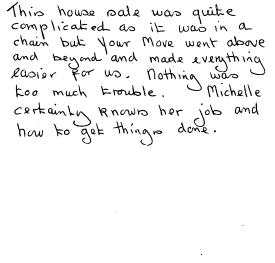 This house sale was quite
complicated as it was in a
chain but Your Move went above
and beyond and made everything
easier for us. Nothing was
too much trouble. Michelle
certainly knows her job and
how to get things done.